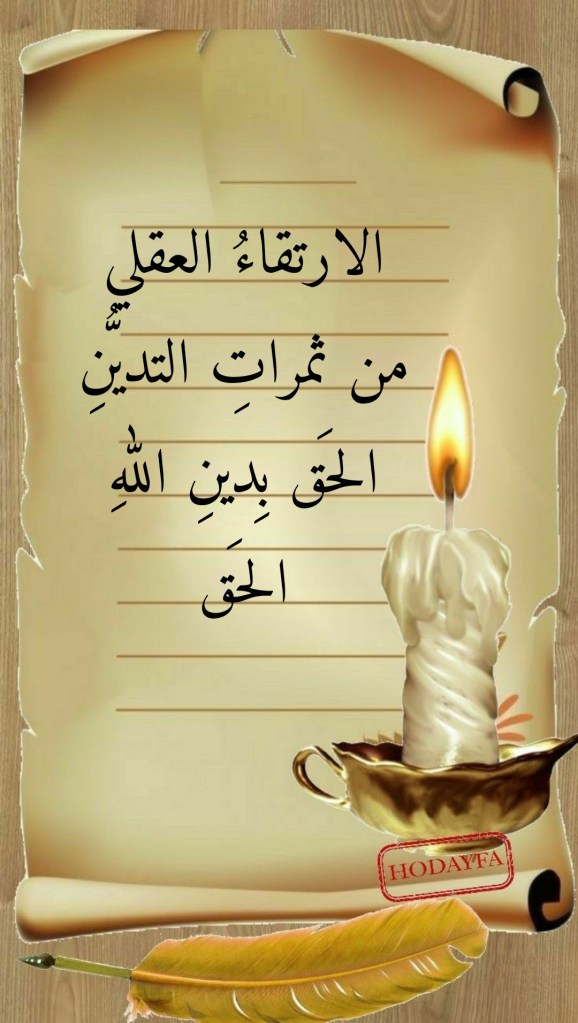 الارتقاءُ العقلي
من ثمراتِ التديُّنِ
الحَق بِدينِ اللهِ
الحَق
HODAYFA